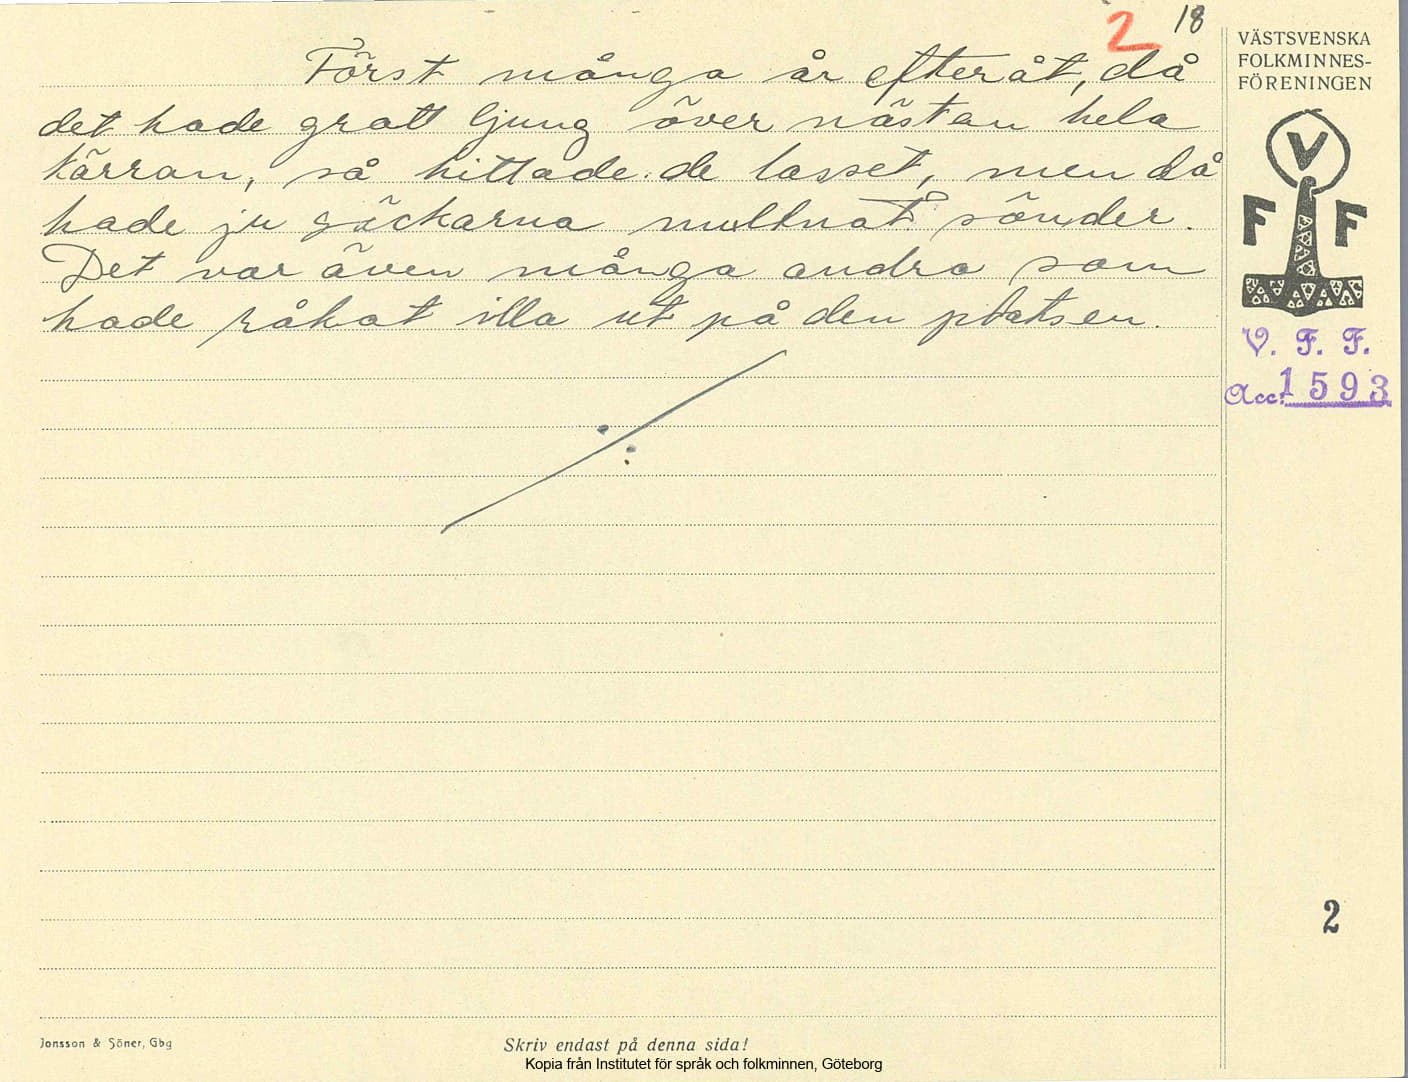 2 18
Först många år efteråt, då
det hade gratt ljung över nästan hela
kärran, så hittade de lasset, men då
hade ju säckarna multnat sönder.
Det var även många andra som
hade råkat illa ut på den platsen.
VÄSTSVENSKA
FOLKMINNES-
FÖRENINGEN
V
F F
V. F. F.
Acc. 1593
2
Jonsson & Söner, Gbg
Skriv endast på denna sida!
Kopia från Institutet för språk och folkminnen, Göteborg